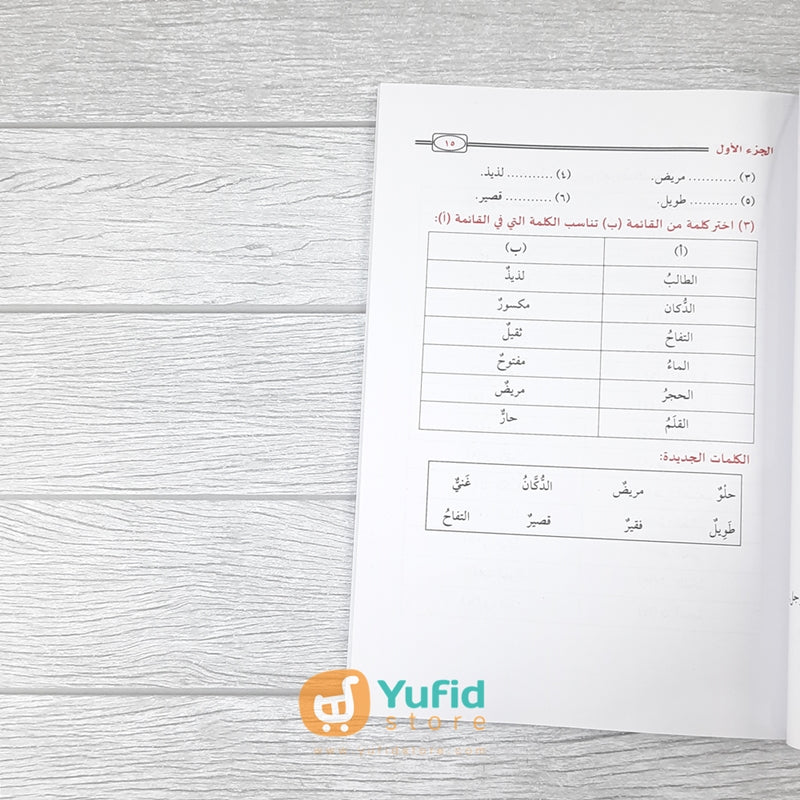 الجزء الأول ١٥
(٣) ........... مريض. (٤) ........... لذيذ.
(٥) ........... طويل. (٦) ........... قصير.
(٣) اختر كلمة من القائمة (ب) تناسب الكلمة التي في القائمة (أ):
(أ) (ب)
الطالبُ لذيذٌ
الدُّكان مكسورٌ
التفاحُ ثقيلٌ
الماءُ مفتوحٌ
الحجرُ مريضٌ
القلَمُ حارٌّ
الكلمات الجديدة:
حلْوٌ مريضٌ الدُّكَّانُ غَنيٌّ
طَوِيلٌ فقيرٌ قصيرٌ التفاحُ
Yufid
store
www.yufidstore.com